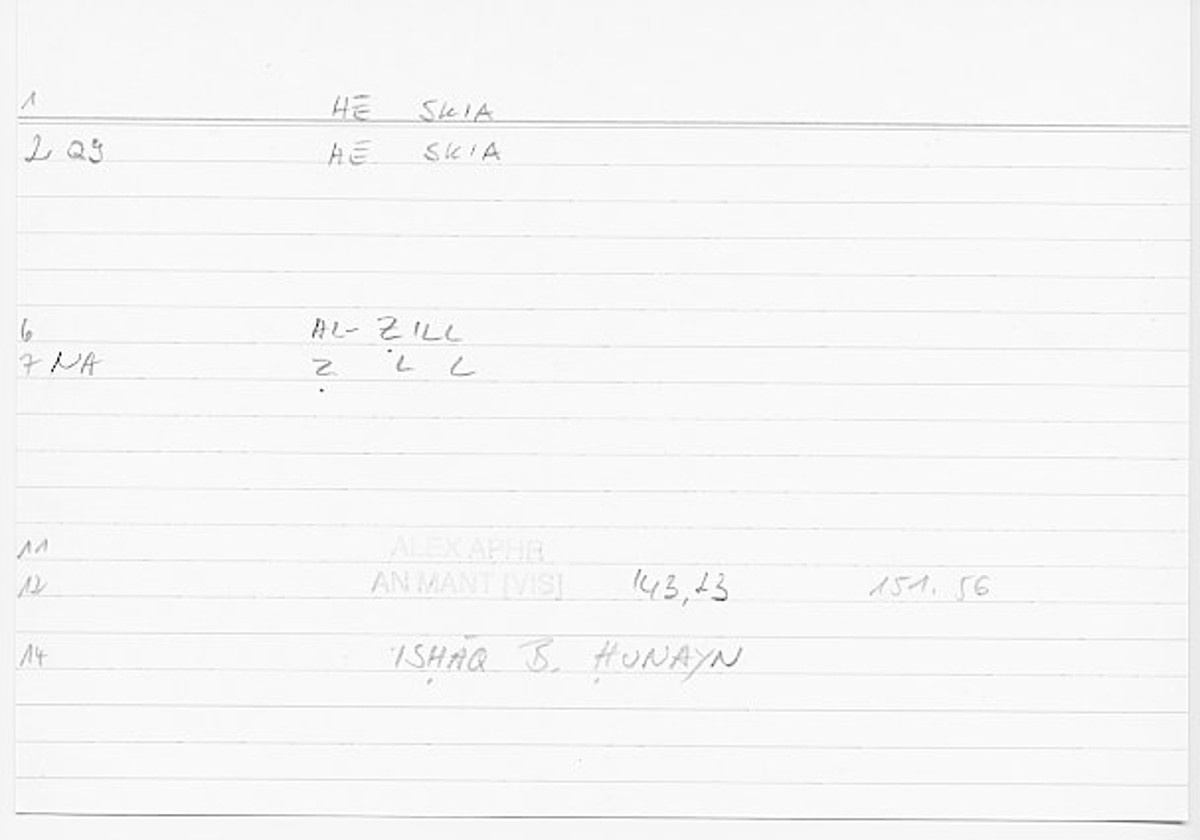 1 HĒ SKIA
2 QG HĒ SKIA
6 AL-ẒILL
7 NA Ẓ L L
11 ALEX APHR
12 AN MANT [VIS] 143,23 151.56
14 ISḤĀQ B. ḤUNAYN